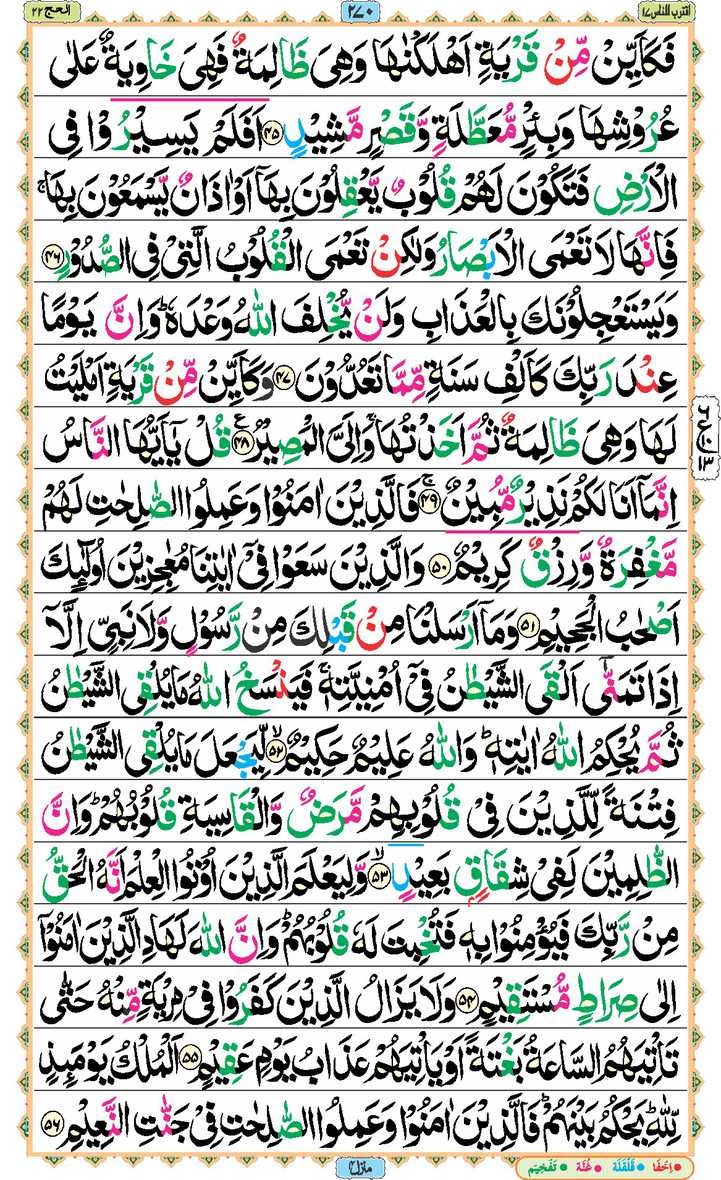 اقترب للناس ١٧
٢٧٠
الحج ٢٢
فَكَاَيِّنْ مِّنْ قَرْيَةٍ اَهْلَكْنٰهَا وَهِيَ ظَالِمَةٌ فَهِيَ خَاوِيَةٌ عَلٰى
عُرُوْشِهَا وَبِئْرٍ مُّعَطَّلَةٍ وَّقَصْرٍ مَّشِيْدٍ ﴿۴۵﴾ اَفَلَمْ يَسِيْرُوْا فِي
الْاَرْضِ فَتَكُوْنَ لَهُمْ قُلُوْبٌ يَّعْقِلُوْنَ بِهَاۤ اَوْ اٰذَانٌ يَّسْمَعُوْنَ بِهَاۚ
فَاِنَّهَا لَا تَعْمَى الْاَبْصَارُ وَلٰكِنْ تَعْمَى الْقُلُوْبُ الَّتِيْ فِي الصُّدُوْرِ ﴿۴۶﴾
وَيَسْتَعْجِلُوْنَكَ بِالْعَذَابِ وَلَنْ يُّخْلِفَ اللّٰهُ وَعْدَهٗؕ وَاِنَّ يَوْمًا
عِنْدَ رَبِّكَ كَاَلْفِ سَنَةٍ مِّمَّا تَعُدُّوْنَ ﴿۴۷﴾ وَكَاَيِّنْ مِّنْ قَرْيَةٍ اَمْلَيْتُ
لَهَا وَهِيَ ظَالِمَةٌ ثُمَّ اَخَذْتُهَاۚ وَاِلَيَّ الْمَصِيْرُ ﴿۴۸﴾ قُلْ يٰۤاَيُّهَا النَّاسُ
اِنَّمَاۤ اَنَا لَكُمْ نَذِيْرٌ مُّبِيْنٌۚ ﴿۴۹﴾ فَالَّذِيْنَ اٰمَنُوْا وَعَمِلُوا الصّٰلِحٰتِ لَهُمْ
مَّغْفِرَةٌ وَّرِزْقٌ كَرِيْمٌ ﴿۵۰﴾ وَالَّذِيْنَ سَعَوْا فِيْۤ اٰيٰتِنَا مُعٰجِزِيْنَ اُولٰٓئِكَ
اَصْحٰبُ الْجَحِيْمِ ﴿۵۱﴾ وَمَاۤ اَرْسَلْنَا مِنْ قَبْلِكَ مِنْ رَّسُوْلٍ وَّلَا نَبِيٍّ اِلَّاۤ
اِذَا تَمَنّٰىۤ اَلْقَى الشَّيْطٰنُ فِيْۤ اُمْنِيَّتِهٖۚ فَيَنْسَخُ اللّٰهُ مَا يُلْقِي الشَّيْطٰنُ
ثُمَّ يُحْكِمُ اللّٰهُ اٰيٰتِهٖؕ وَاللّٰهُ عَلِيْمٌ حَكِيْمٌۙ ﴿۵۲﴾ لِّيَجْعَلَ مَا يُلْقِي الشَّيْطٰنُ
فِتْنَةً لِّلَّذِيْنَ فِيْ قُلُوْبِهِمْ مَّرَضٌ وَّالْقَاسِيَةِ قُلُوْبُهُمْؕ وَاِنَّ
الظّٰلِمِيْنَ لَفِيْ شِقَاقٍۭ بَعِيْدٍۙ ﴿۵۳﴾ وَّلِيَعْلَمَ الَّذِيْنَ اُوْتُوا الْعِلْمَ اَنَّهُ الْحَقُّ
مِنْ رَّبِّكَ فَيُؤْمِنُوْا بِهٖ فَتُخْبِتَ لَهٗ قُلُوْبُهُمْؕ وَاِنَّ اللّٰهَ لَهَادِ الَّذِيْنَ اٰمَنُوْۤا
اِلٰى صِرَاطٍ مُّسْتَقِيْمٍ ﴿۵۴﴾ وَلَا يَزَالُ الَّذِيْنَ كَفَرُوْا فِيْ مِرْيَةٍ مِّنْهُ حَتّٰى
تَاْتِيَهُمُ السَّاعَةُ بَغْتَةً اَوْ يَاْتِيَهُمْ عَذَابُ يَوْمٍ عَقِيْمٍ ﴿۵۵﴾ اَلْمُلْكُ يَوْمَئِذٍ
لِّلّٰهِؕ يَحْكُمُ بَيْنَهُمْؕ فَالَّذِيْنَ اٰمَنُوْا وَعَمِلُوا الصّٰلِحٰتِ فِيْ جَنّٰتِ النَّعِيْمِ ﴿۵۶﴾
ع ٦ ١٣
منزل ٤
اِخفَا قَلْقَلَة غُنَّة تَفْخِيْم